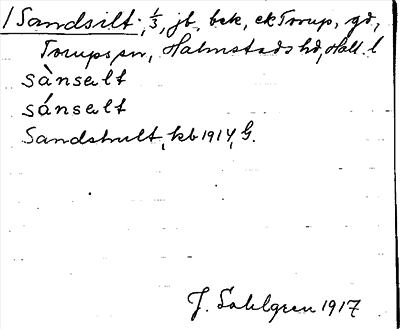 1 Sandsilt, 1/3, jb, bek, ek Torup, gd,
Torups sn, Halmstads hd, Hall. l
sànselt
sánselt
Sandshult, kb 1914, G.
J. Sahlgren 1917